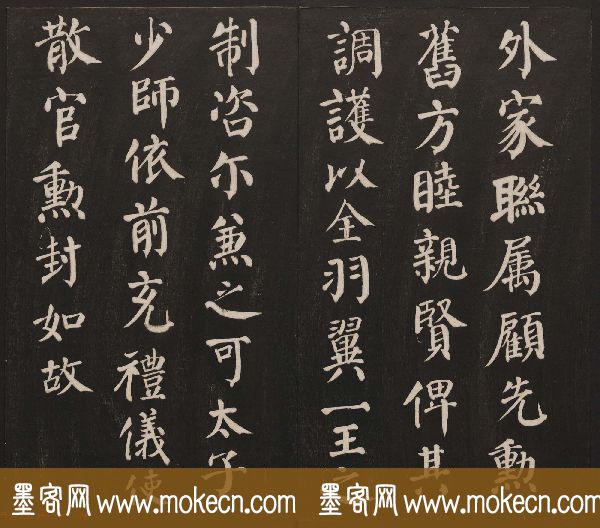 外家聯属顧先勲
舊方睦親賢俾其
調護以全羽翼一王之
制咨尔兼之可太子
少師依前充禮儀使
散官勲封如故
墨客网 www.mokecn.com 墨客网 www.mokecn.com